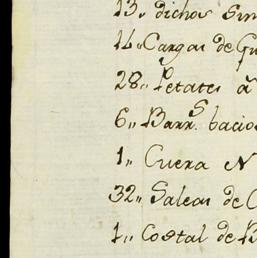 13,, dichos Sin
14,, Cargas de Gu
28,, Petates â
6,, Barr.s bacio
1,, Cuera N
32,, Saleas de C
1,, Costal de B